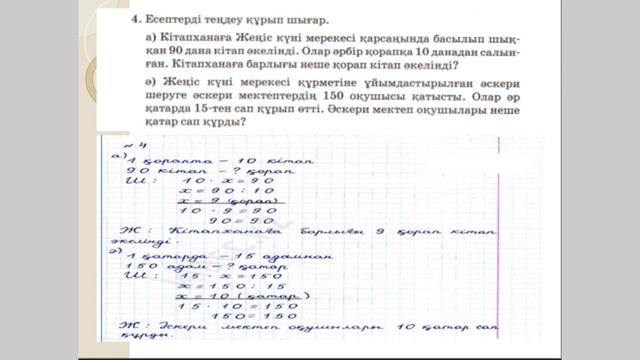 4. Есептерді теңдеу құрып шығар.
а) Кітапханаға Жеңіс күні мерекесі қарсаңында басылып шық-
қан 90 дана кітап әкелінді. Олар әрбір қорапқа 10 данадан салын-
ған. Кітапханаға барлығы неше қорап кітап әкелінді?
ә) Жеңіс күні мерекесі құрметіне ұйымдастырылған әскери
шеруге әскери мектептердің 150 оқушысы қатысты. Олар әр
қатарда 15-тен сап құрып өтті. Әскери мектеп оқушылары неше
қатар сап құрды?
№ 4
а)
1 қорапта – 10 кітап
90 кітап – ? қорап
Ш: 10 · х = 90
х = 90 : 10
х = 9 (қорап)
10 · 9 = 90
90 = 90
Ж: Кітапханаға барлығы 9 қорап кітап
әкелінді.
ә)
1 қатарда – 15 адамнан
150 адам – ? қатар
Ш: 15 · х = 150
х = 150 : 15
х = 10 (қатар)
15 · 10 = 150
150 = 150
Ж: Әскери мектеп оқушылары 10 қатар сап
құрды.